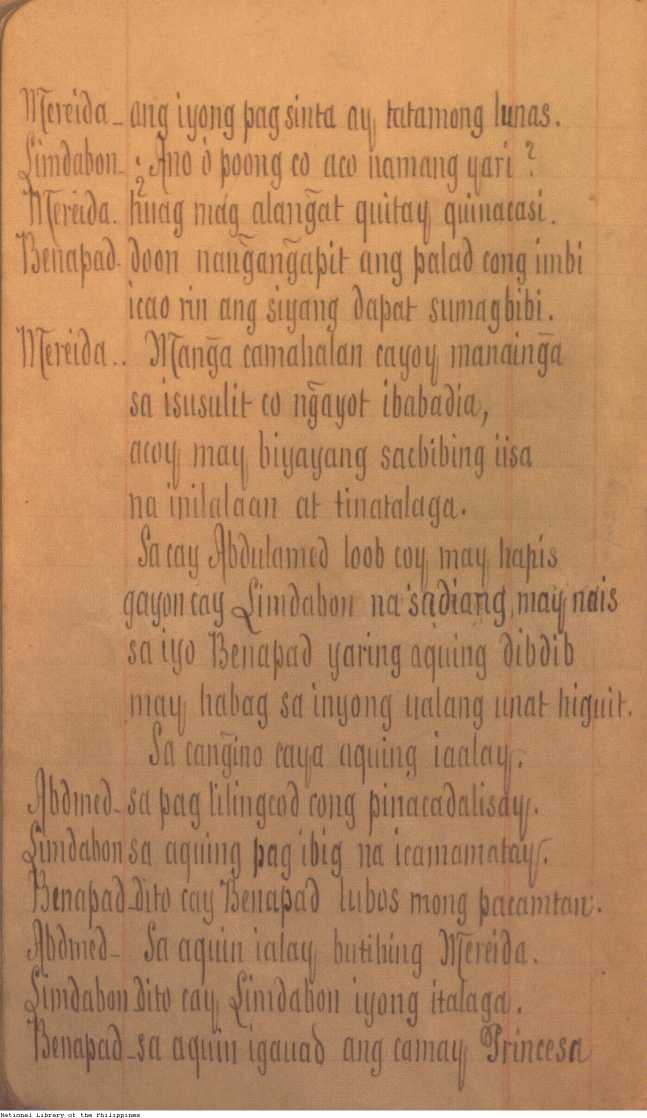 Mereida - ang iyong pag sinta ay tatamong lunas.
Limdabon - ¿Ano ò poong co aco namang yari?
Mereida. huag mag alang̃at quitay quinacasi.
Benapad - doon nang̃ang̃apit ang palad cong imbi
icao rin ang siyang dapat sumagbibi.
Mereida.. Mang̃a camahalan cayoy manaing̃a
sa isusulit co ng̃ayot ibabadia,
acoy may biyayang sacbibing iisa
na inilalaan at tinatalaga.
Sa cay Abdulamed loob coy may hapis
gayon cay Limdabon na sadiang may nais
sa iyo Benapad yaring aquing dibdib
may habag sa inyong ualang unat higuit.
Sa cang̃ino caya aquing iaalay.
Abdmed - sa pag lilingcod cong pinacadalisay.
Limdabon sa aquing pag ibig na icamamatay.
Benapad - dito cay Benapad lubos mong pacamtan.
Abdmed - Sa aquin ialay butihing Mereida.
Limdabon dito cay Limdabon iyong italaga.
Benapad - sa aquin igauad ang camay Princesa
National Library of the Philippines